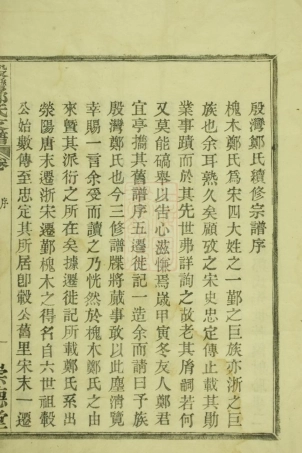 殷灣鄭氏續修宗譜序
槐木鄭氏爲宋四大姓之一鄞之巨族亦浙之巨
族也余耳熟久矣顧攷之宋史忠定傳止載其勛
業事蹟而於其先世弗詳詢之故老其胄嗣若何
又莫能礭舉以告心滋慊焉歲甲寅冬友人鄭君
宜亭攜其舊譜序五遷徙記一造余而請曰予族
殷灣鄭氏也今三修譜牒將蕆事敢以此塵清覽
幸賜一言余受而讀之乃恍然於槐木鄭氏之由
來暨其派衍之所在矣據遷徙記所載鄭氏系出
滎陽唐末遷浙宋遷鄞槐木之得名自六世祖穀
公始數傳至忠定其所居卽穀公舊里宋末一遷
殷灣鄭氏宗譜 卷 序
崇德堂